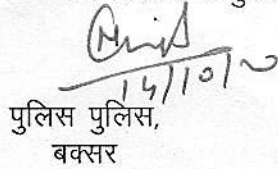 14/10/20
पुलिस पुलिस,
बक्सर